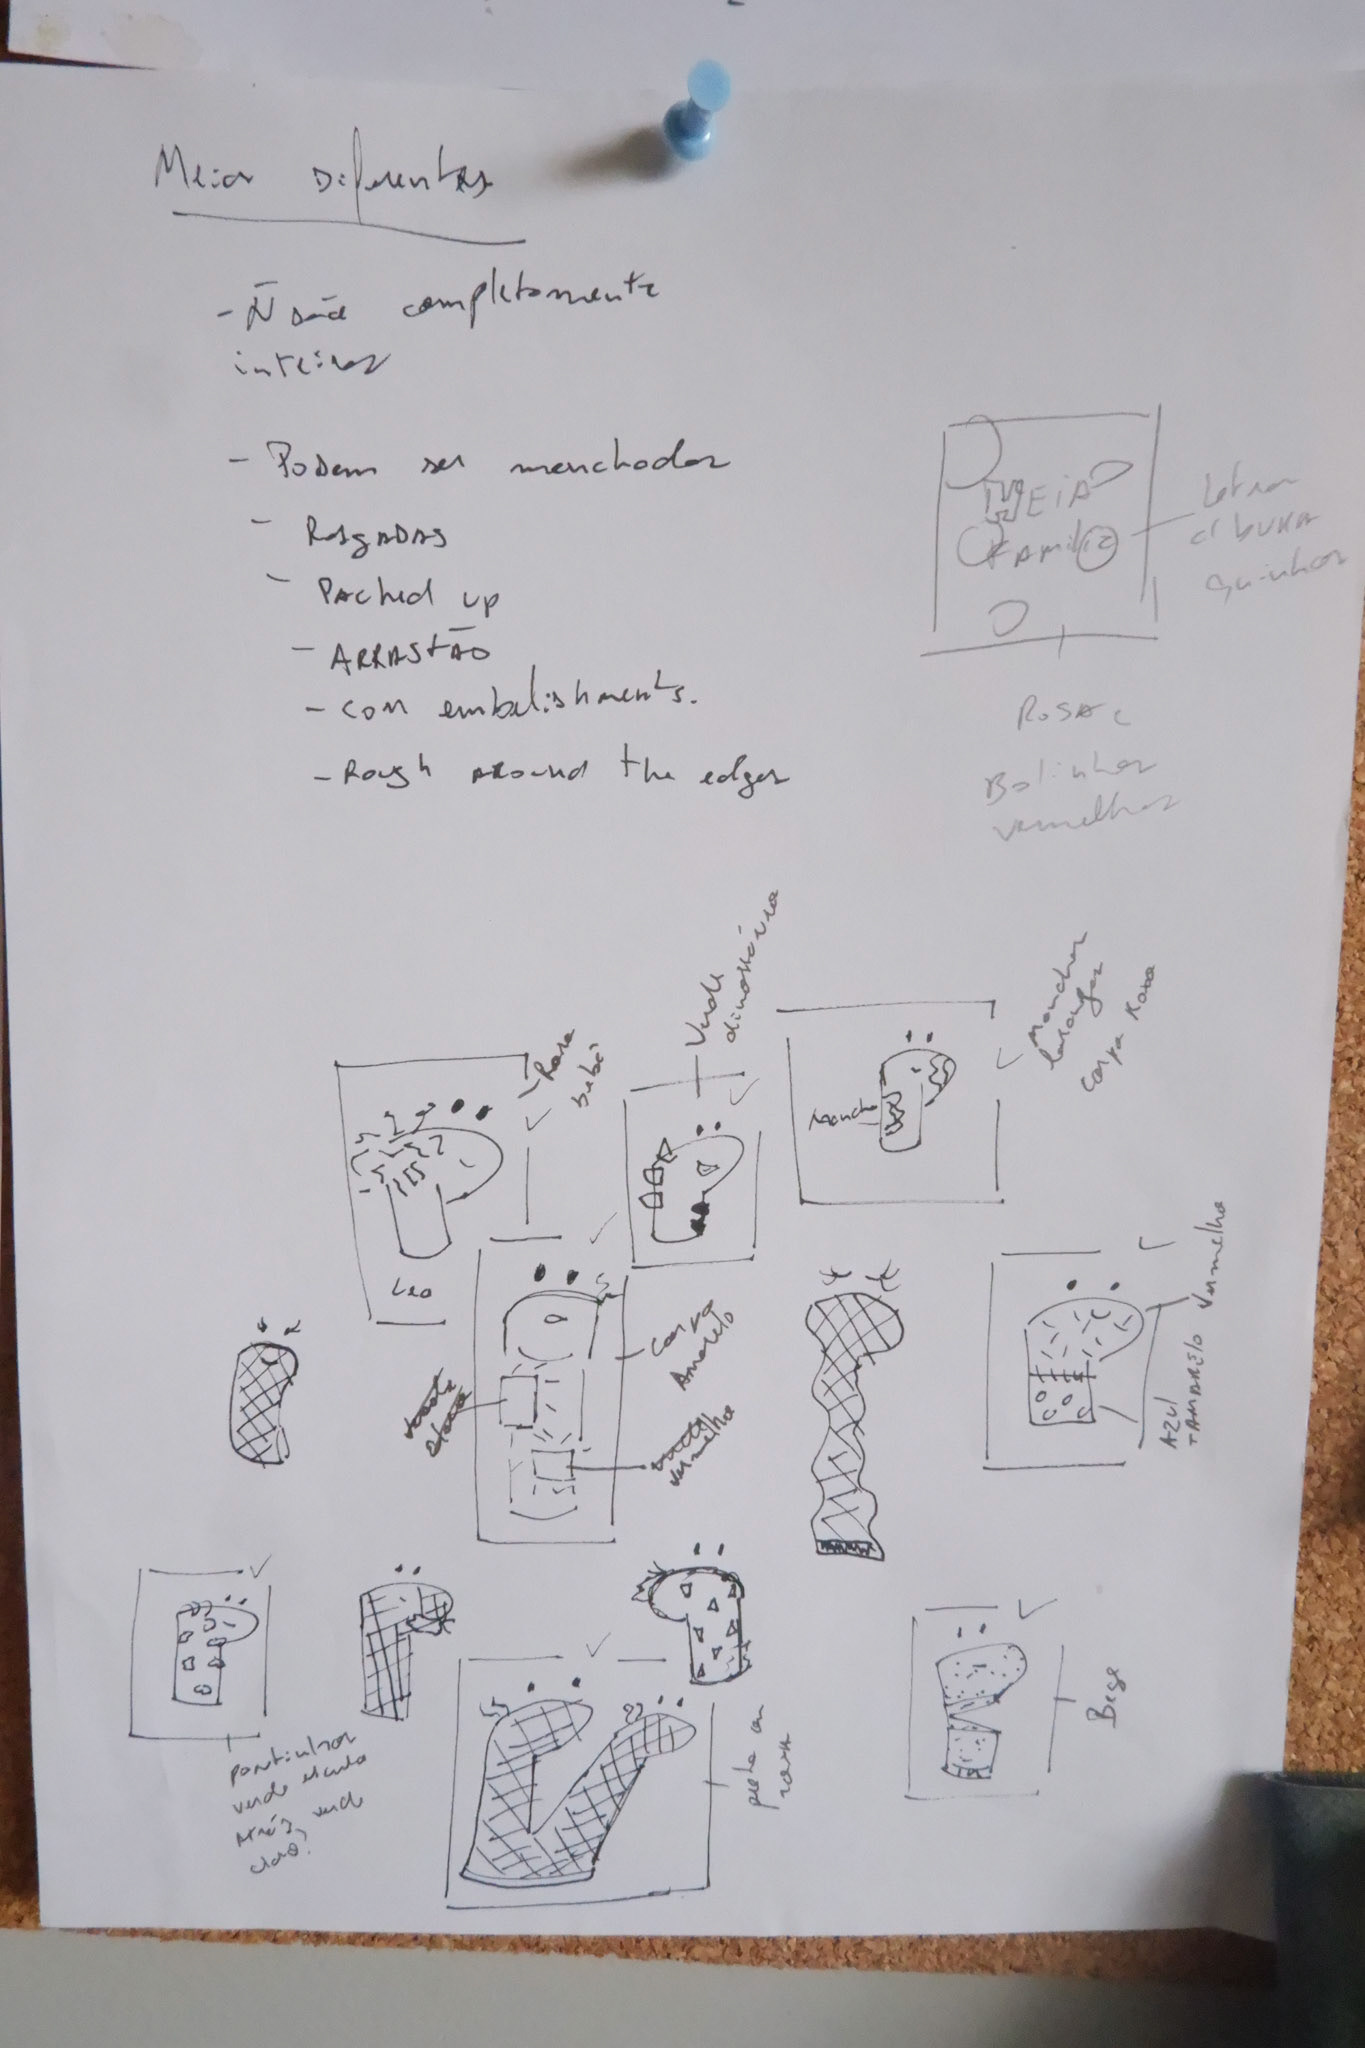 Meias Diferentes
- Ñ são completamente
inteiras
- Podem ser manchadas
- RASgADAS
- PAched up
- ARRASTÃO
- com embelishments.
- Rough AROUND the edges
MEiA
FAMiliA
Letras
c/ bura
quinhos
ROSA c
Bolinhas
vermelhas
Rosa
bebé
Verde
dinossáuro
Manchas
laranjas
corpo Rosa
Mancha
Leo
Corpo
Amarelo
vermelha
Vermelho
AZUl
+AMARElO
pontinhos
verde escuro
atrás verde
claro?
preto com
rosa
Bege